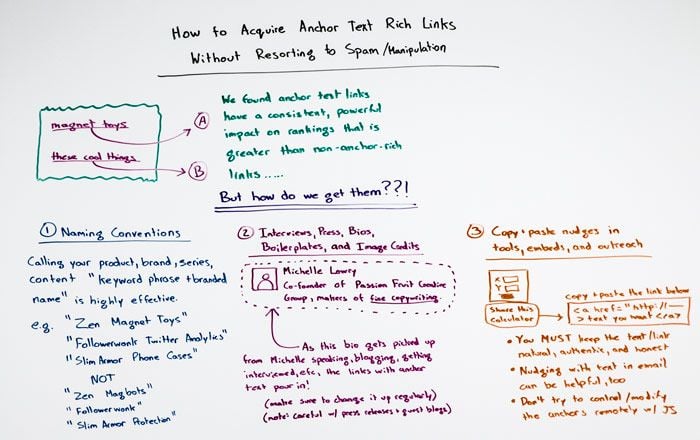 How to Acquire Anchor Text Rich Links
Without Resorting to Spam/Manipulation
magnet toys
A
these cool things
B
We found anchor test links
have a consistent, powerful
impact on rankings that is
greater than non-anchor-rich
links.....
But how do we get them??!
1 Naming Conventions
Calling your product, brand, series,
content "keyword phrase + branded
name" is highly effective.
e.g. "Zen Magnet Toys"
"Followerwonk Twitter Analytics"
"Slim Armor Phone Cases"
NOT
"Zen Magbots"
"Followerwonk"
"Slim Armor Protection"
2 Interviews, Press, Bios,
Boilerplates, and Image Credits
Michelle Lowry
Co-founder of Passion Fruit Creative
Group, makers of fine copywriting.
As this bio gets picked up
from Michelle speaking, blogging, getting
interviewed, etc, the links with anchor
text pour in!
(make sure to change it up regularly)
(note: careful w/ press releases + guest blogs)
3 Copy + paste nudges in
tools, embeds, and outreach
X
Y
Share this
calculator
copy + paste the link below
<a href="http://—
> text you want </a>
• You MUST keep the text/link
natural, authentic, and honest
• Nudging with text in email
can be helpful, too
• Don't try to control/modify
the anchors remotely w/ JS